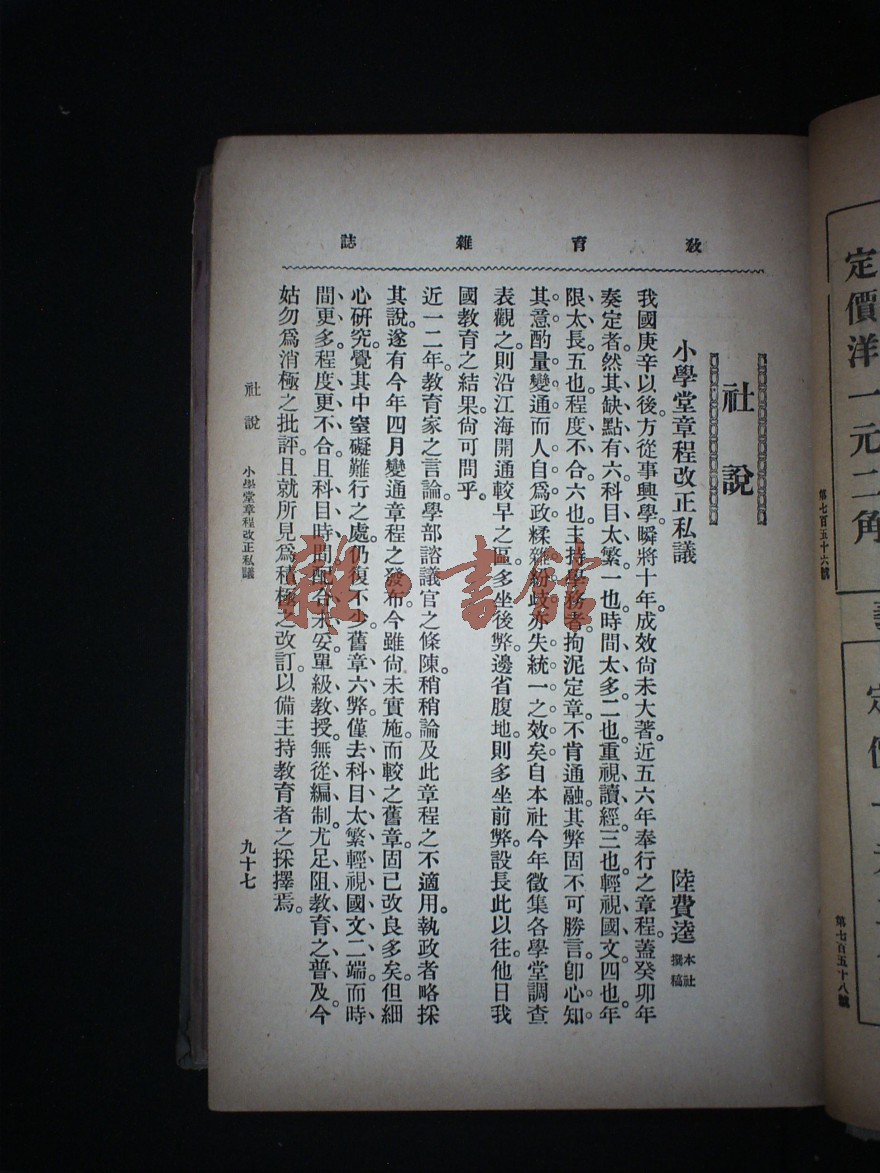 教育雜誌
社說
小學堂章程改正私議
陸費逵 本社撰稿
我國庚辛以後。方從事興學。瞬將十年。成效尚未大著。近五六年奉行之章程。蓋癸卯年
奏定者。然其缺點有六。科目太繁一也。時間太多二也。重視讀經三也。輕視國文四也。年
限太長五也。程度不合六也。主持學務者。拘泥定章。不肯通融。其弊固不可勝言。卽心知
其意。酌量變通。而人自爲政。糅雜紛歧。亦失統一之效矣。自本社今年徵集各學堂調查
表觀之。則沿江海開通較早之區。多坐後弊。邊省腹地。則多坐前弊。設長此以往。他日我
國教育之結果。尙可問乎。
近一二年。教育家之言論。學部諮議官之條陳。稍稍論及此章程之不適用。執政者略採
其說。遂有今年四月變通章程之發布。今雖尙未實施。而較之舊章。固已改良多矣。但細
心研究。覺其中窒礙難行之處。仍復不少。舊章六弊。僅去科目太繁輕視國文二端。而時
間更多。程度更不合。且科目時間。配合未安。單級教授。無從編制。尤足阻教育之普及。今
姑勿爲消極之批評。且就所見。爲積極之改訂。以備主持教育者之採擇焉。
社說 小學堂章程改正私議
九十七
定價洋一元二角
第七百五十六號
第七百五十八號
雜·書館